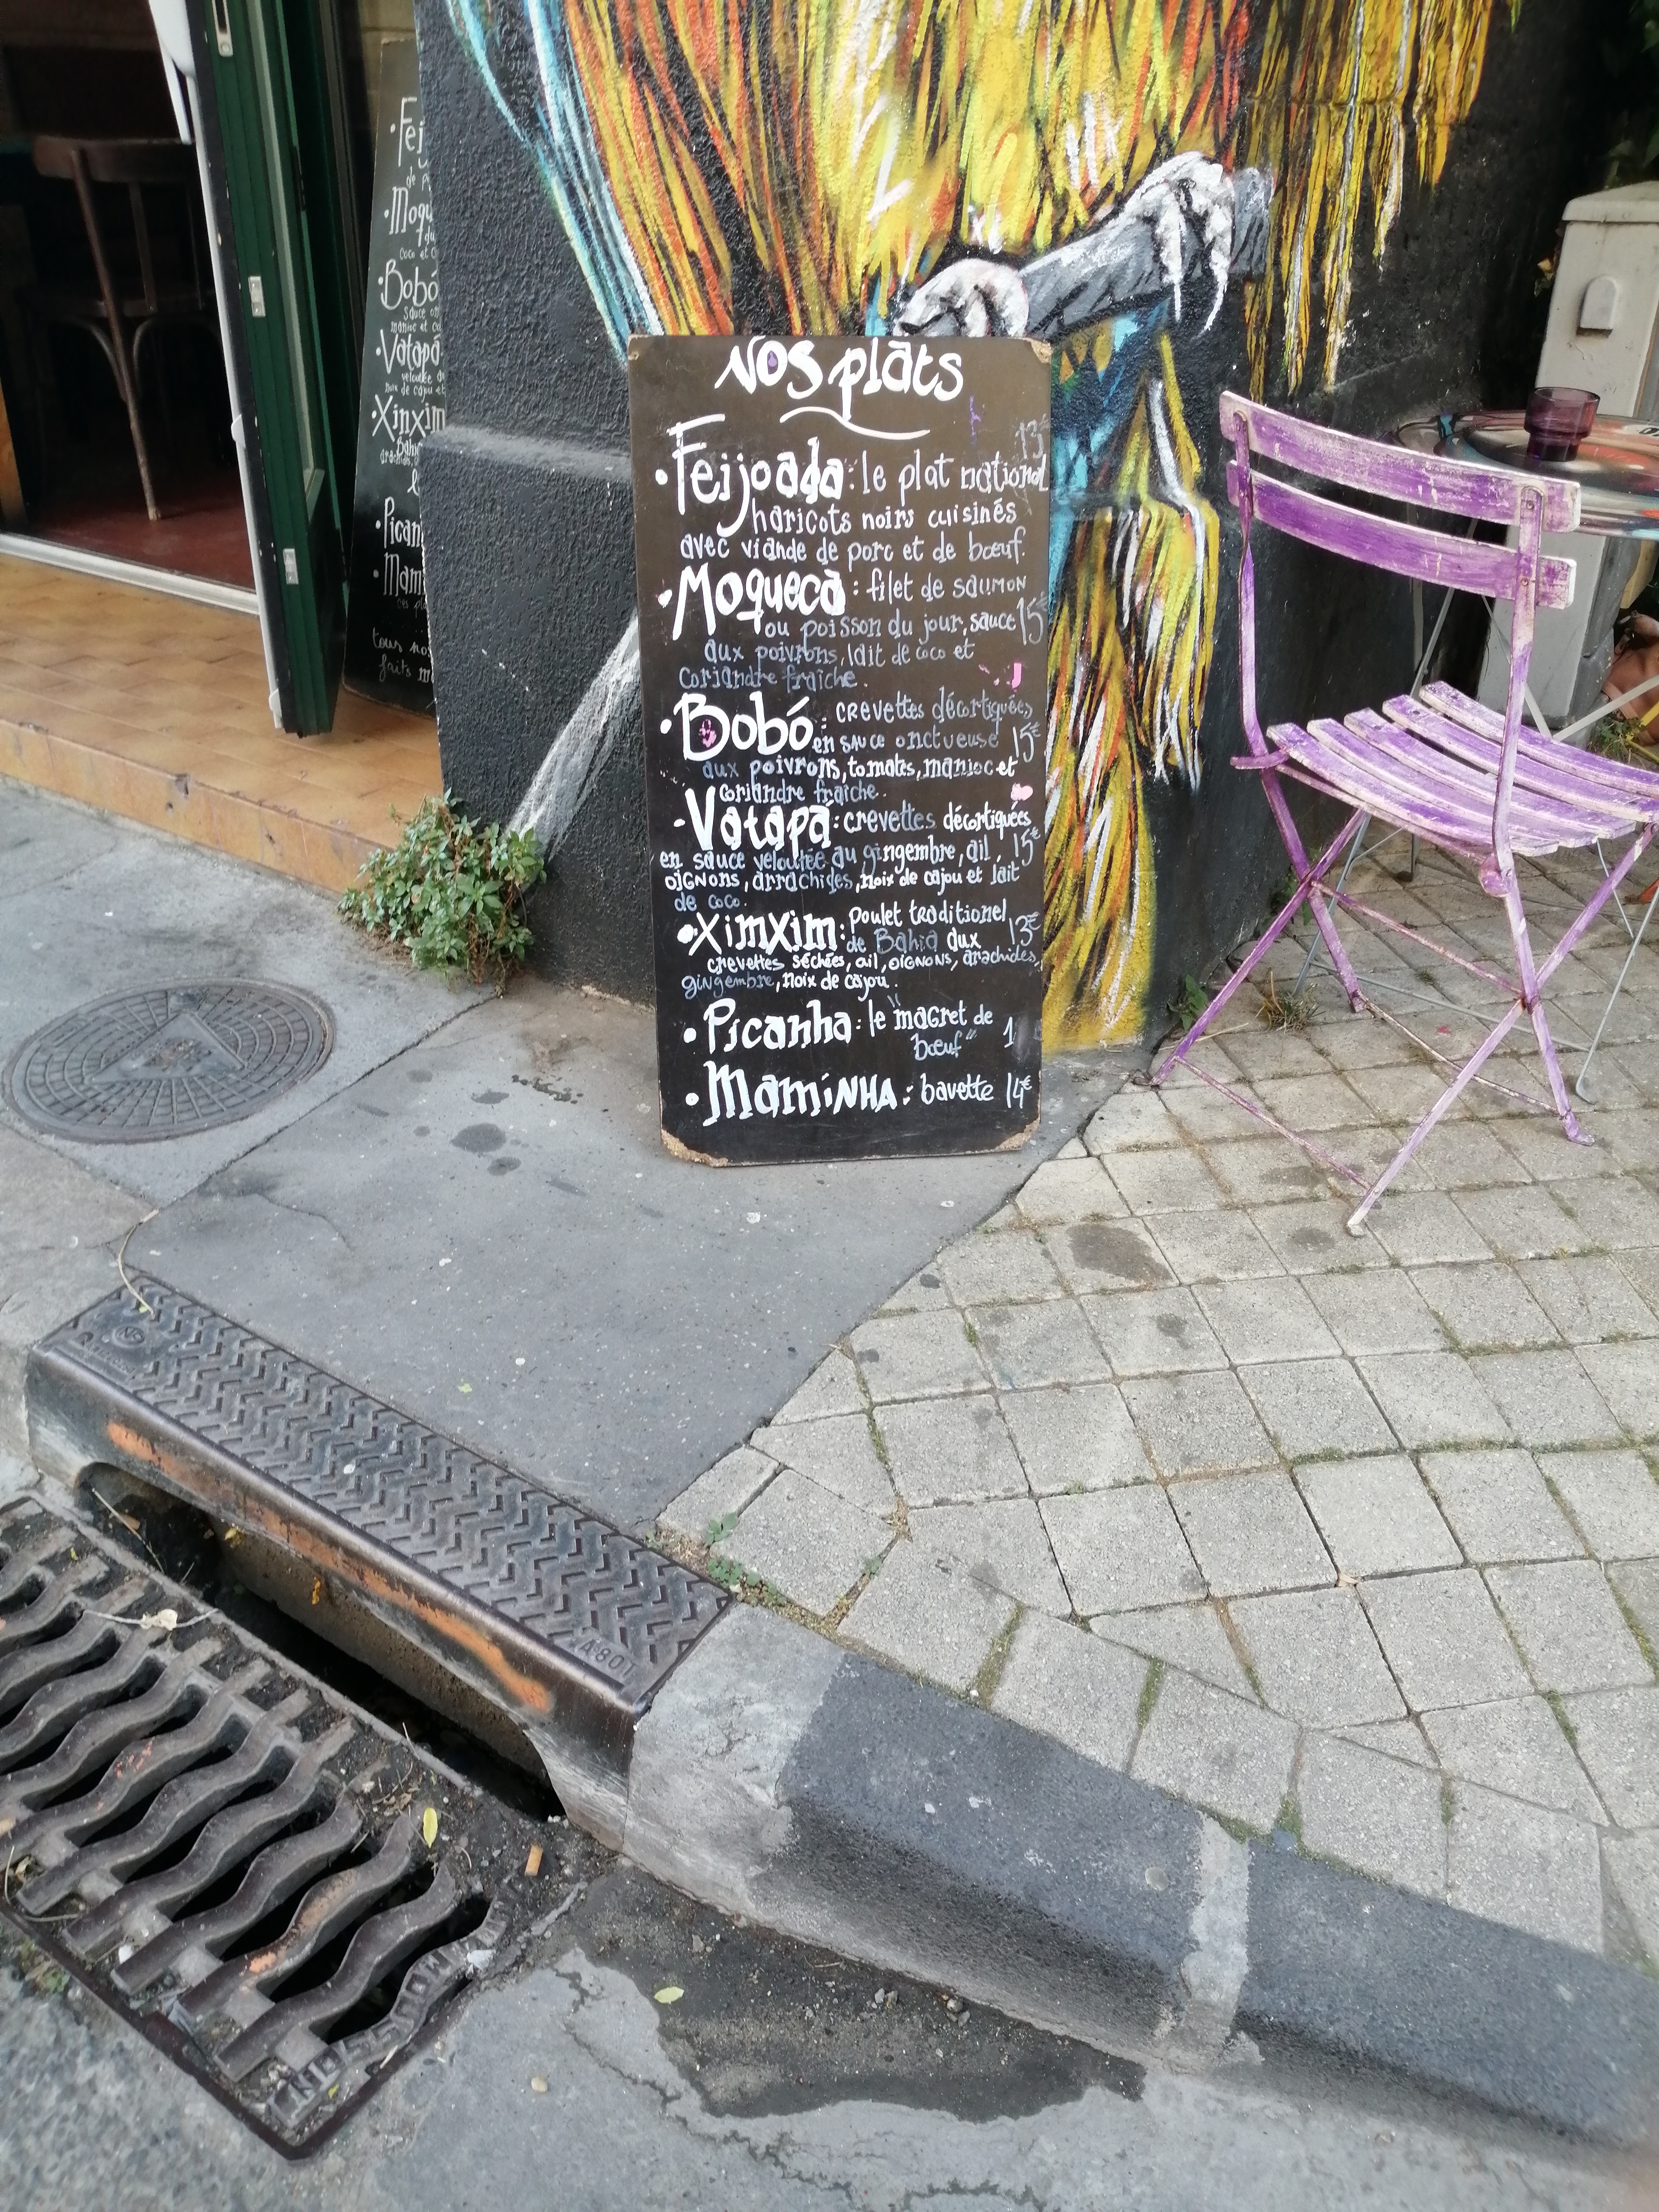 Nos plats
13€
• Feijoada : le plat national
haricots noirs cuisinés
avec viande de porc et de bœuf.
• Moqueca : filet de saumon
ou poisson du jour, sauce 15€
aux poivrons, lait de coco et
coriandre fraîche.
• Bobó : crevettes décortiquées
en sauce onctueuse 15€
aux poivrons, tomates, manioc et
coriandre fraîche.
- Vatapá : crevettes décortiquées
en sauce veloutée au gingembre, ail, 15€
oignons, arrachides, noix de cajou et lait
de coco.
• Ximxim : poulet traditionel
de Bahia aux 13€
crevettes séchées, ail, oignons, arachides,
gingembre, noix de cajou.
• Picanha : le "magret de
bœuf" 1
• Maminha : bavette 14€
• Fei
de p
• Moqu
du
coco et c
Bobó
sauce on
manioc et co
• Vatapá
veloutée
noix de cajou
• Xinxim
Bahia
• Pican
• Mam
tous nos
faits m
A 80T